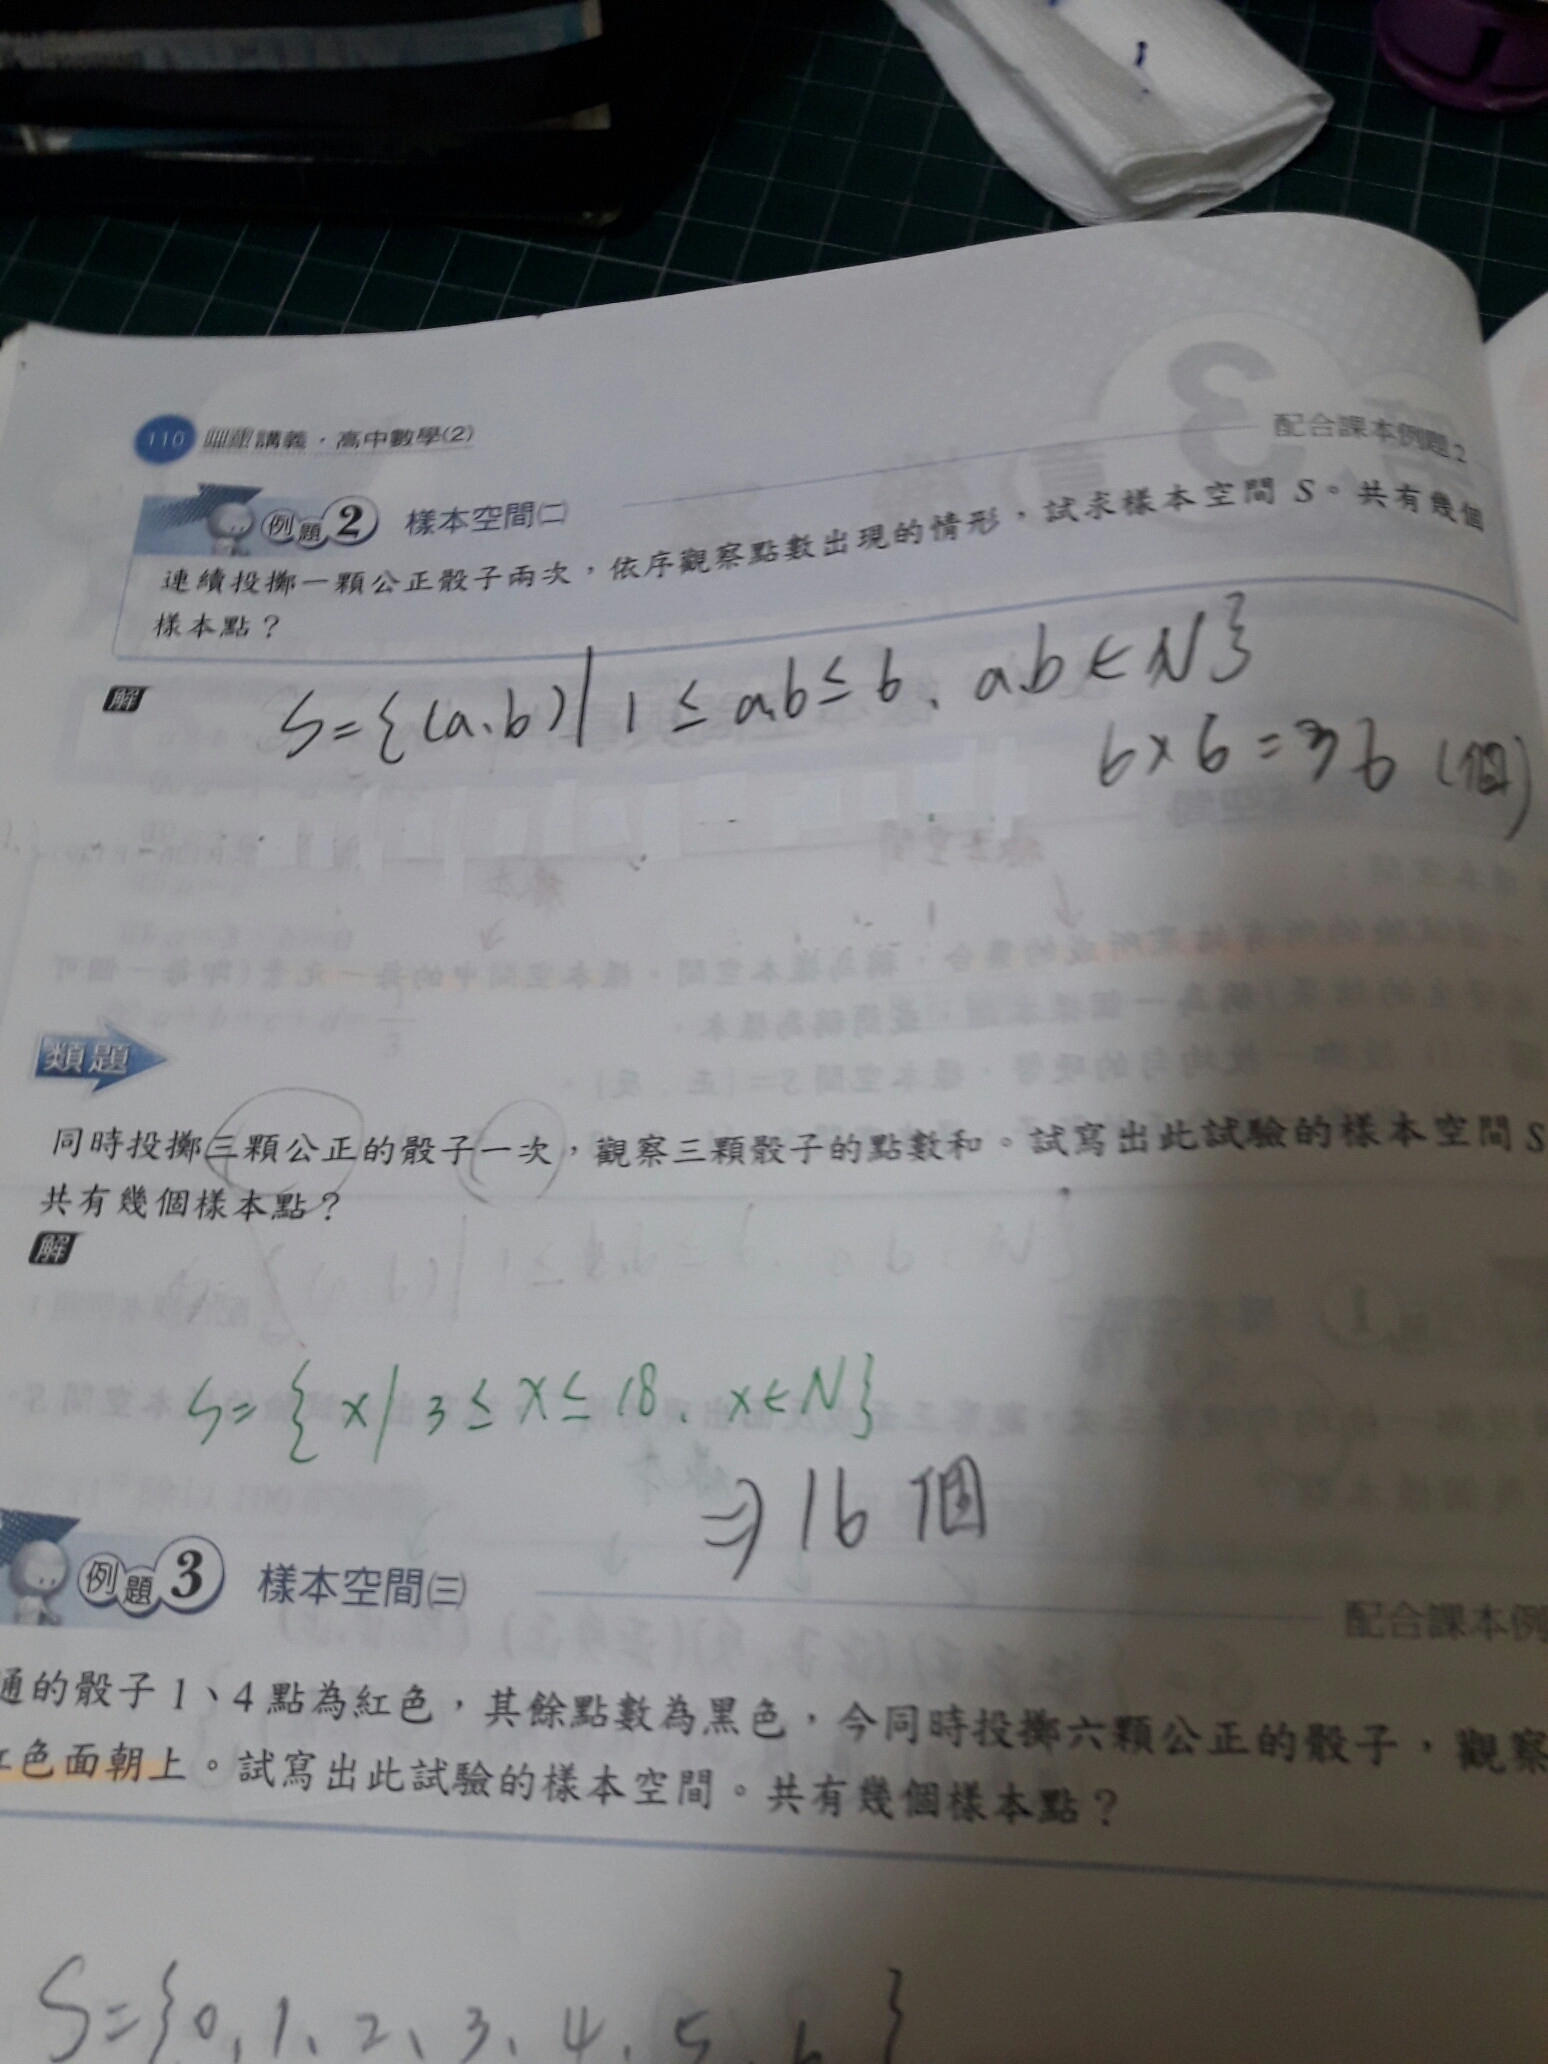 110 講義．高中數學(2)
配合課本例題2
例題2 樣本空間㈡
連續投擲一顆公正骰子兩次，依序觀察點數出現的情形，試求樣本空間 S。共有幾個
樣本點？
解
S={(a,b)|1≤a,b≤6, a,b∈N}
6×6=36(個)
類題
同時投擲三顆公正的骰子一次，觀察三顆骰子的點數和。試寫出此試驗的樣本空間 S
共有幾個樣本點？
解
S={x|3≤x≤18, x∈N}
⇒16個
例題3 樣本空間㈢
配合課本例
通的骰子1、4點為紅色，其餘點數為黑色，今同時投擲六顆公正的骰子，觀察
紅色面朝上。試寫出此試驗的樣本空間。共有幾個樣本點？
S={0,1,2,3,4,5,6}